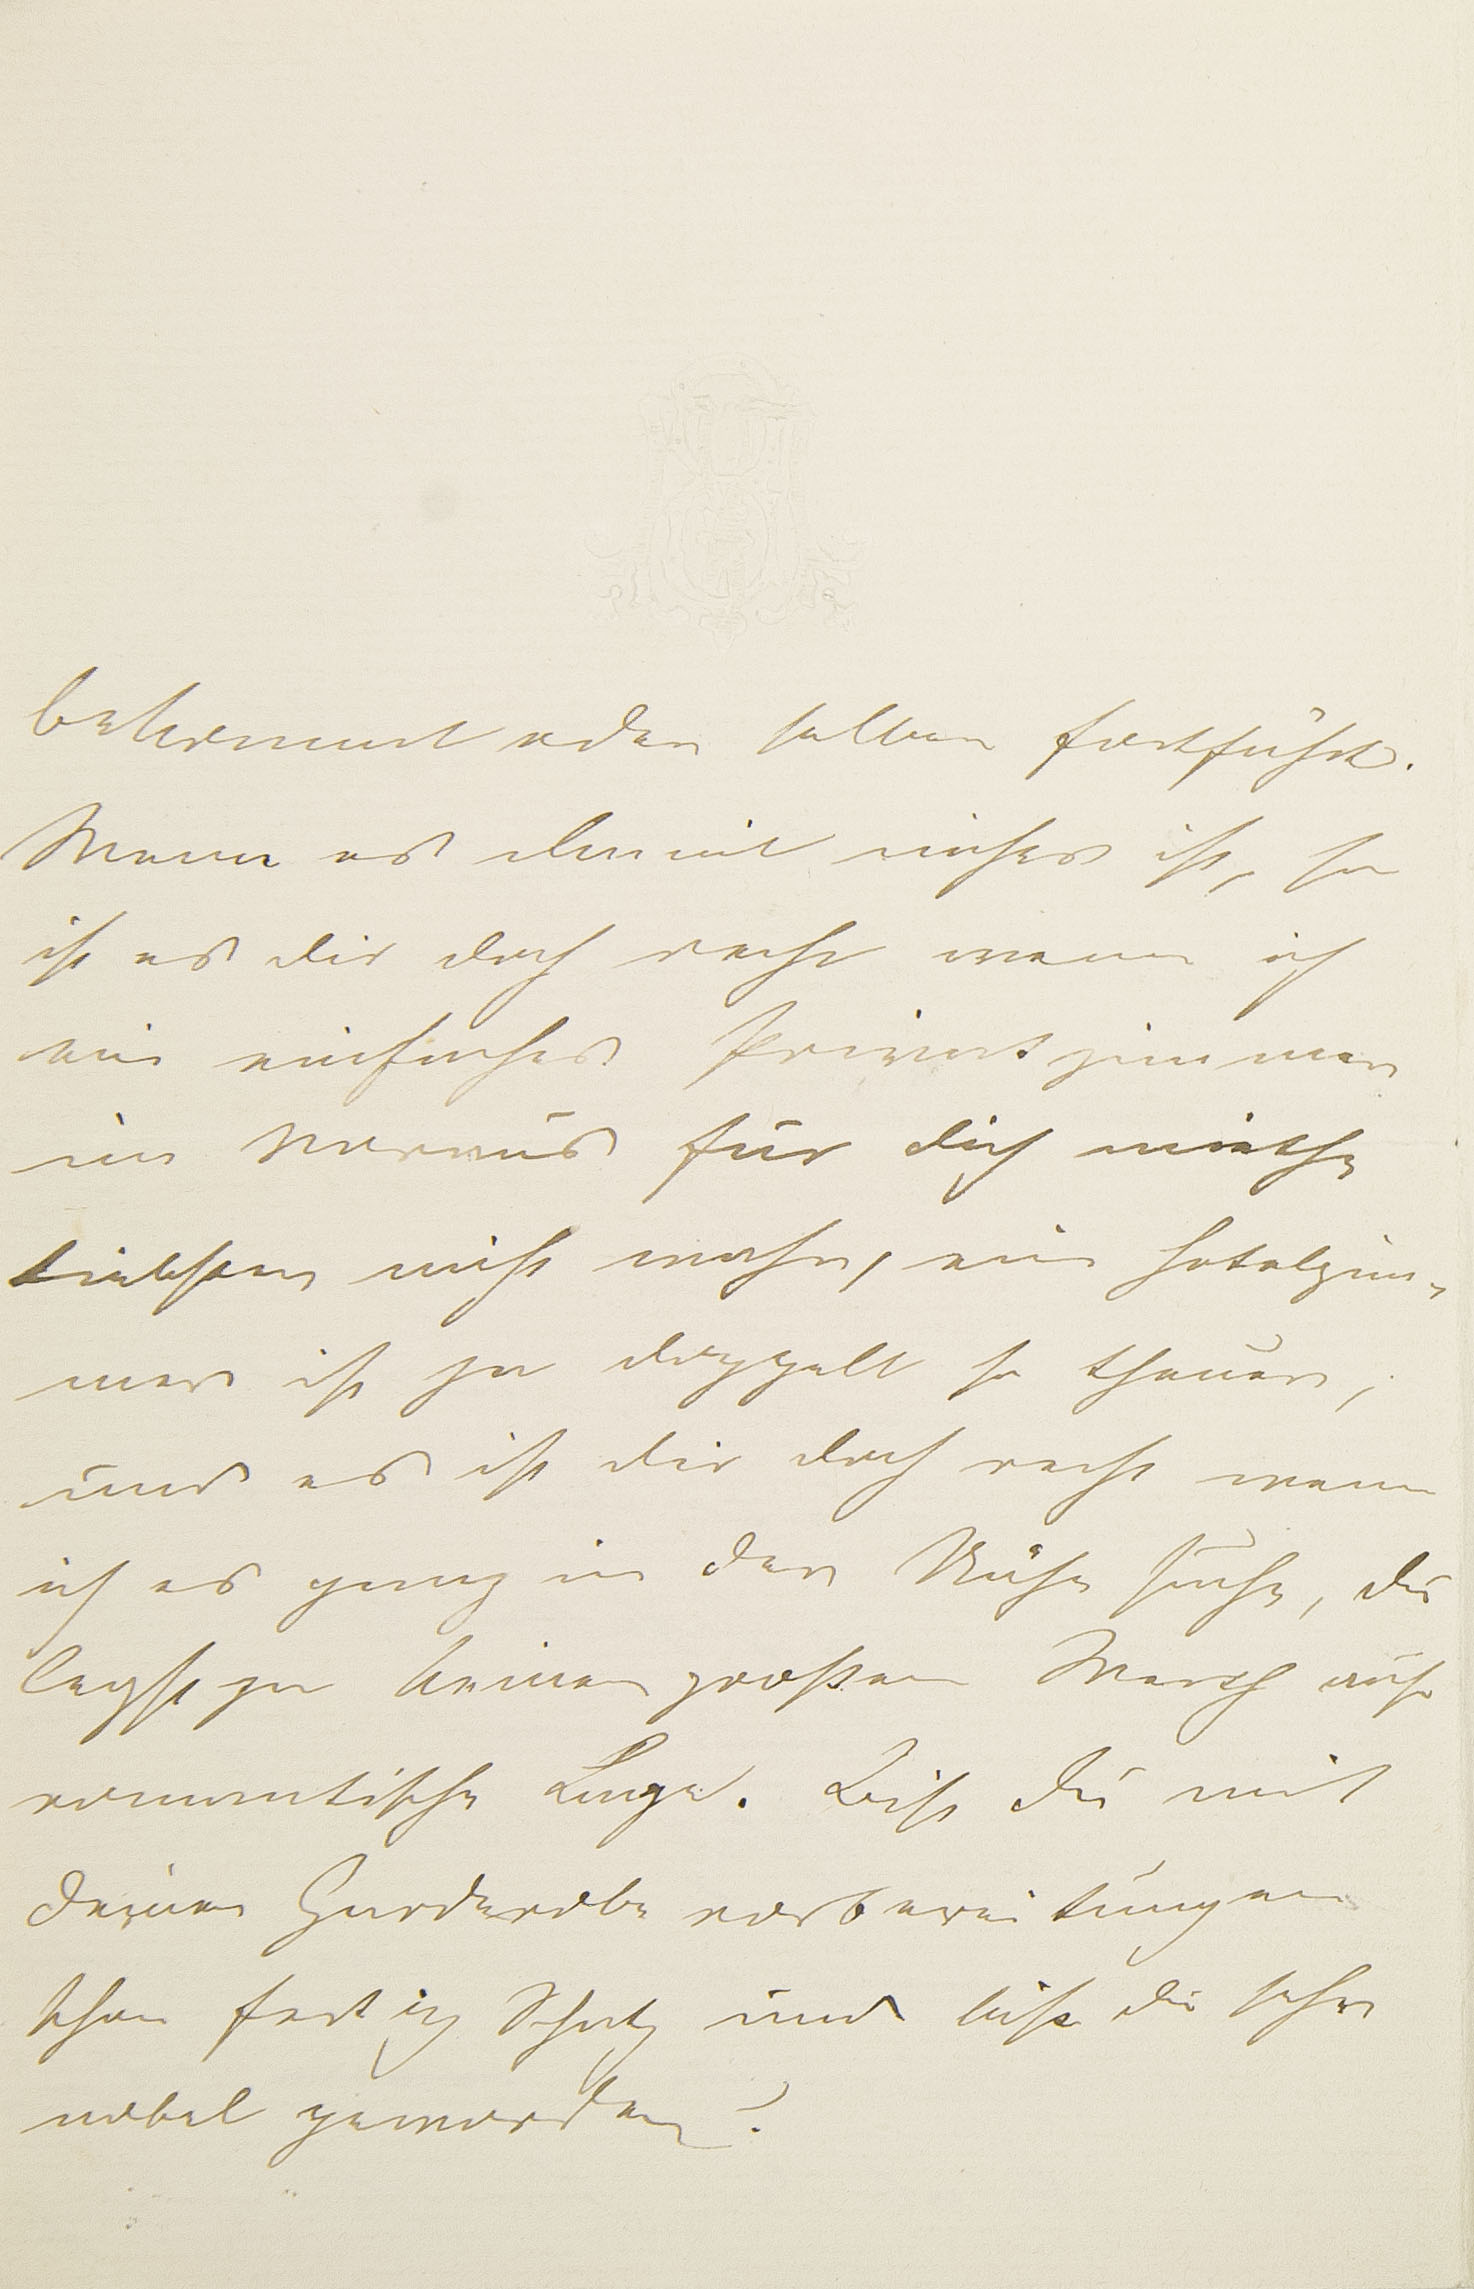 bekommt oder selber fortführt.
Wenn es damit nichts ist, so
ist es dir doch recht wenn ich
ein einfaches Privatzimmer
im voraus für dich miethe
Liebster nicht wahr, ein Hotelzim-
mer ist ja doppelt so theuer,
und es ist dir doch recht wenn
ich es ganz in der Nähe suche, du
legst ja keinen großen Werth auf
romantische Lage. Bist du mit
deinen Garderobevorbereitungen
schon fertig Schatz und bist du sehr
nobel geworden?